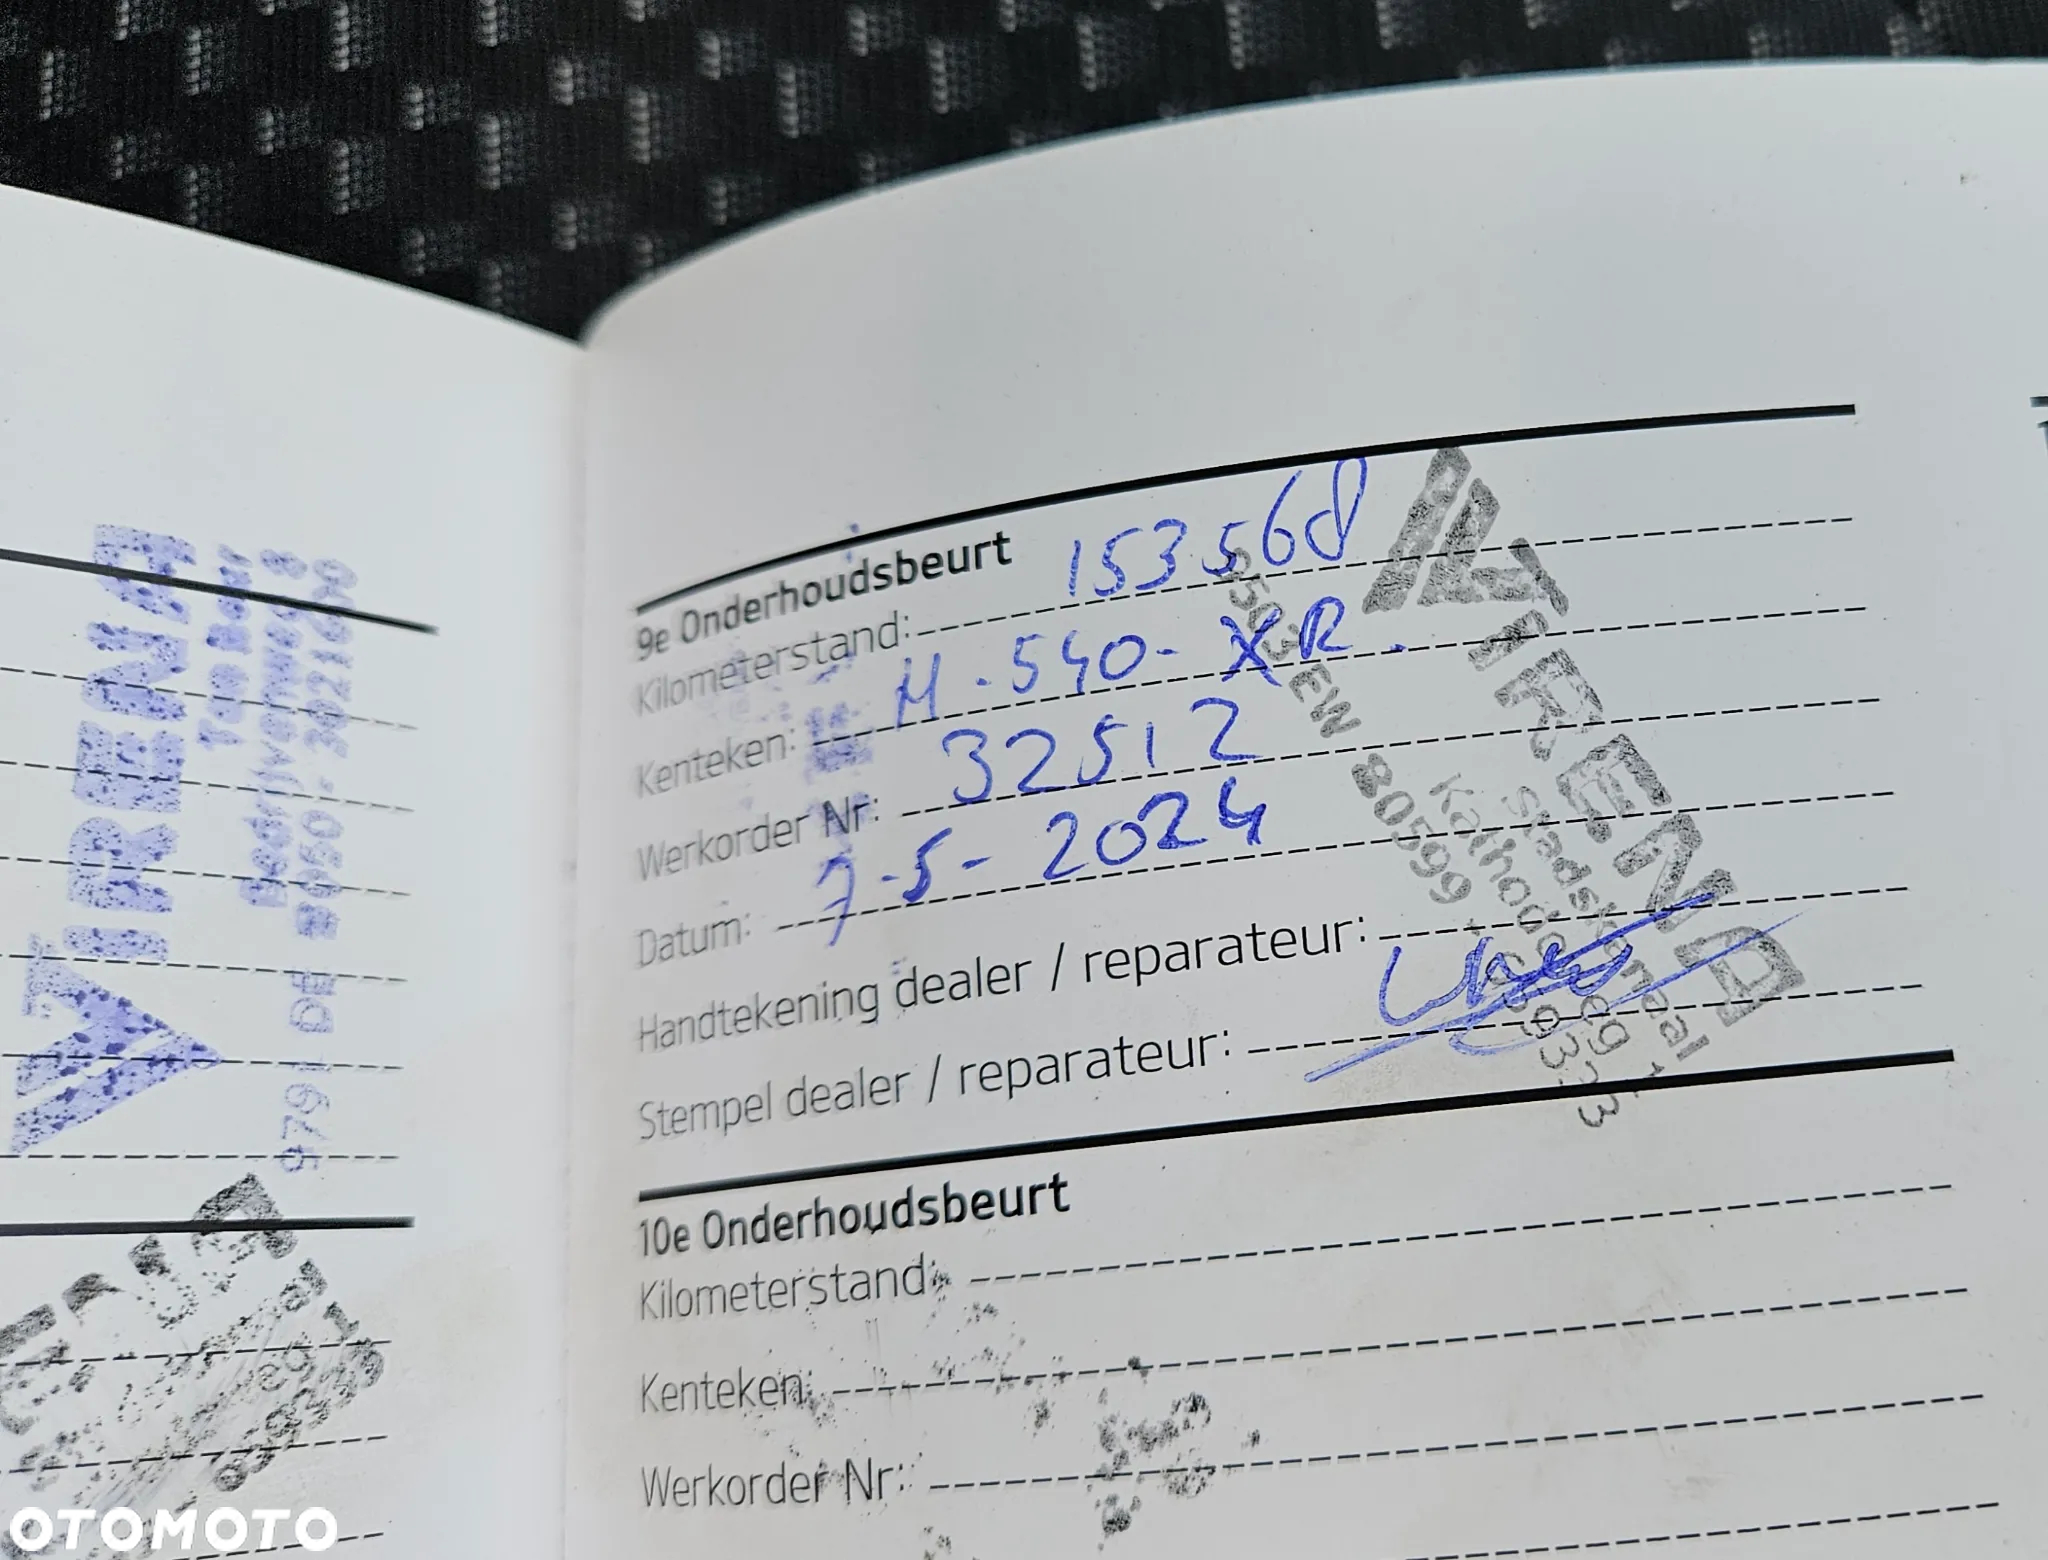 VIRENNA
Ten Boer
Bedrijvenweg 8
9791 DE 050-3021600
9e Onderhoudsbeurt
Kilometerstand: 153568
Kenteken: H-540-XR.
Werkorder Nr: 32512
Datum: 7-5-2024
Handtekening dealer / reparateur:
Stempel dealer / reparateur:
VIRENNA
Stadskanaal
Kathodeweg 1
9503 EW 0599
10e Onderhoudsbeurt
Kilometerstand:
Kenteken:
Werkorder Nr:
OTOMOTO